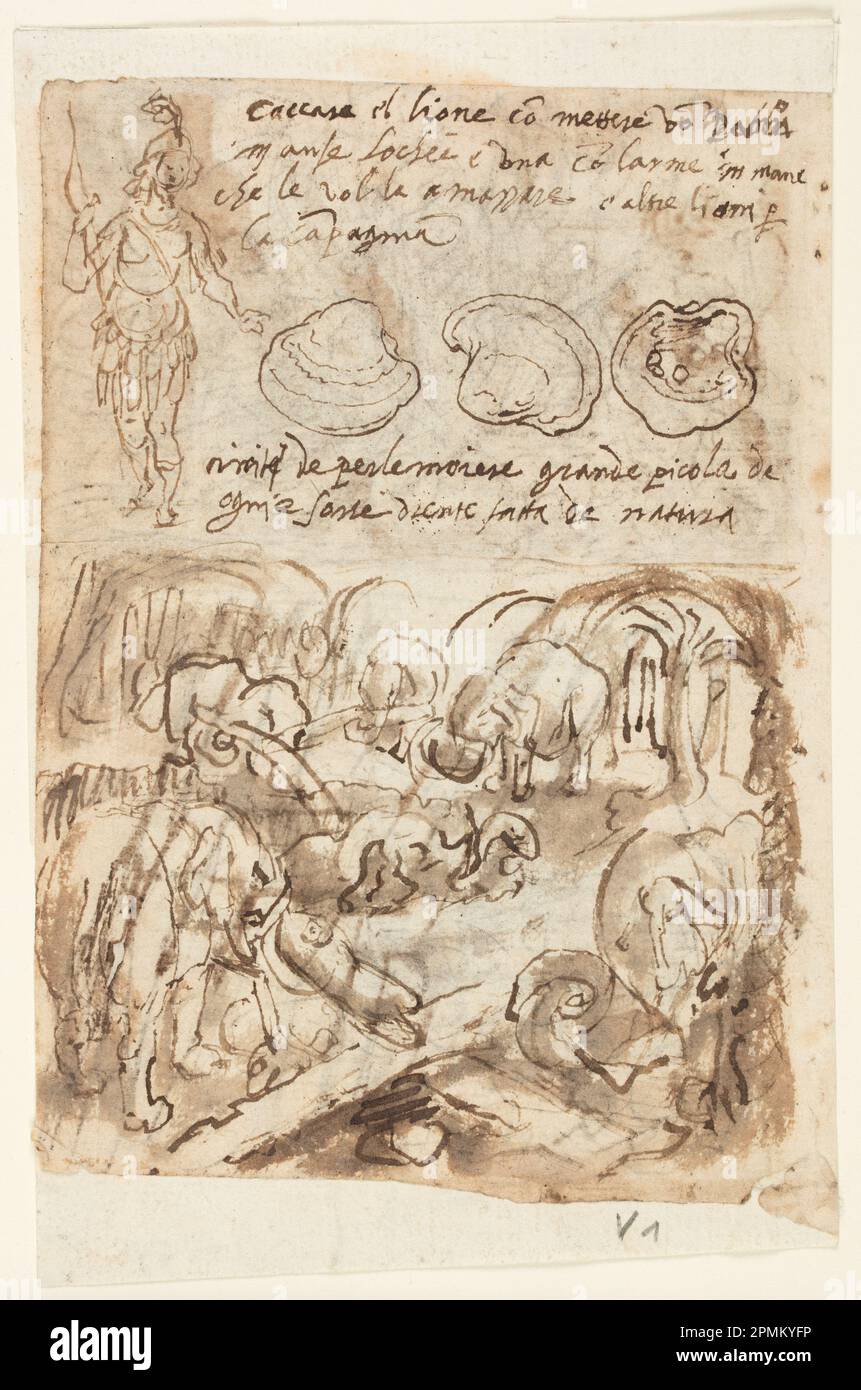 caccare el lione cō mettere
in ante e una cō larme in mane
che le vol la amazzare e altre lioni p
la cāpagnia
de perle moiere grande picola de
ognie sorte diente fatta de natura
V1
alamy
Image ID: 2PMKYFP
www.alamy.com